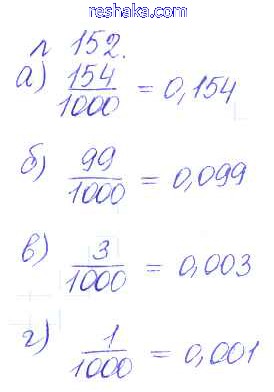 reshaka.com
л 152.
а) 154/1000 = 0,154
б) 99/1000 = 0,099
в) 3/1000 = 0,003
г) 1/1000 = 0,001